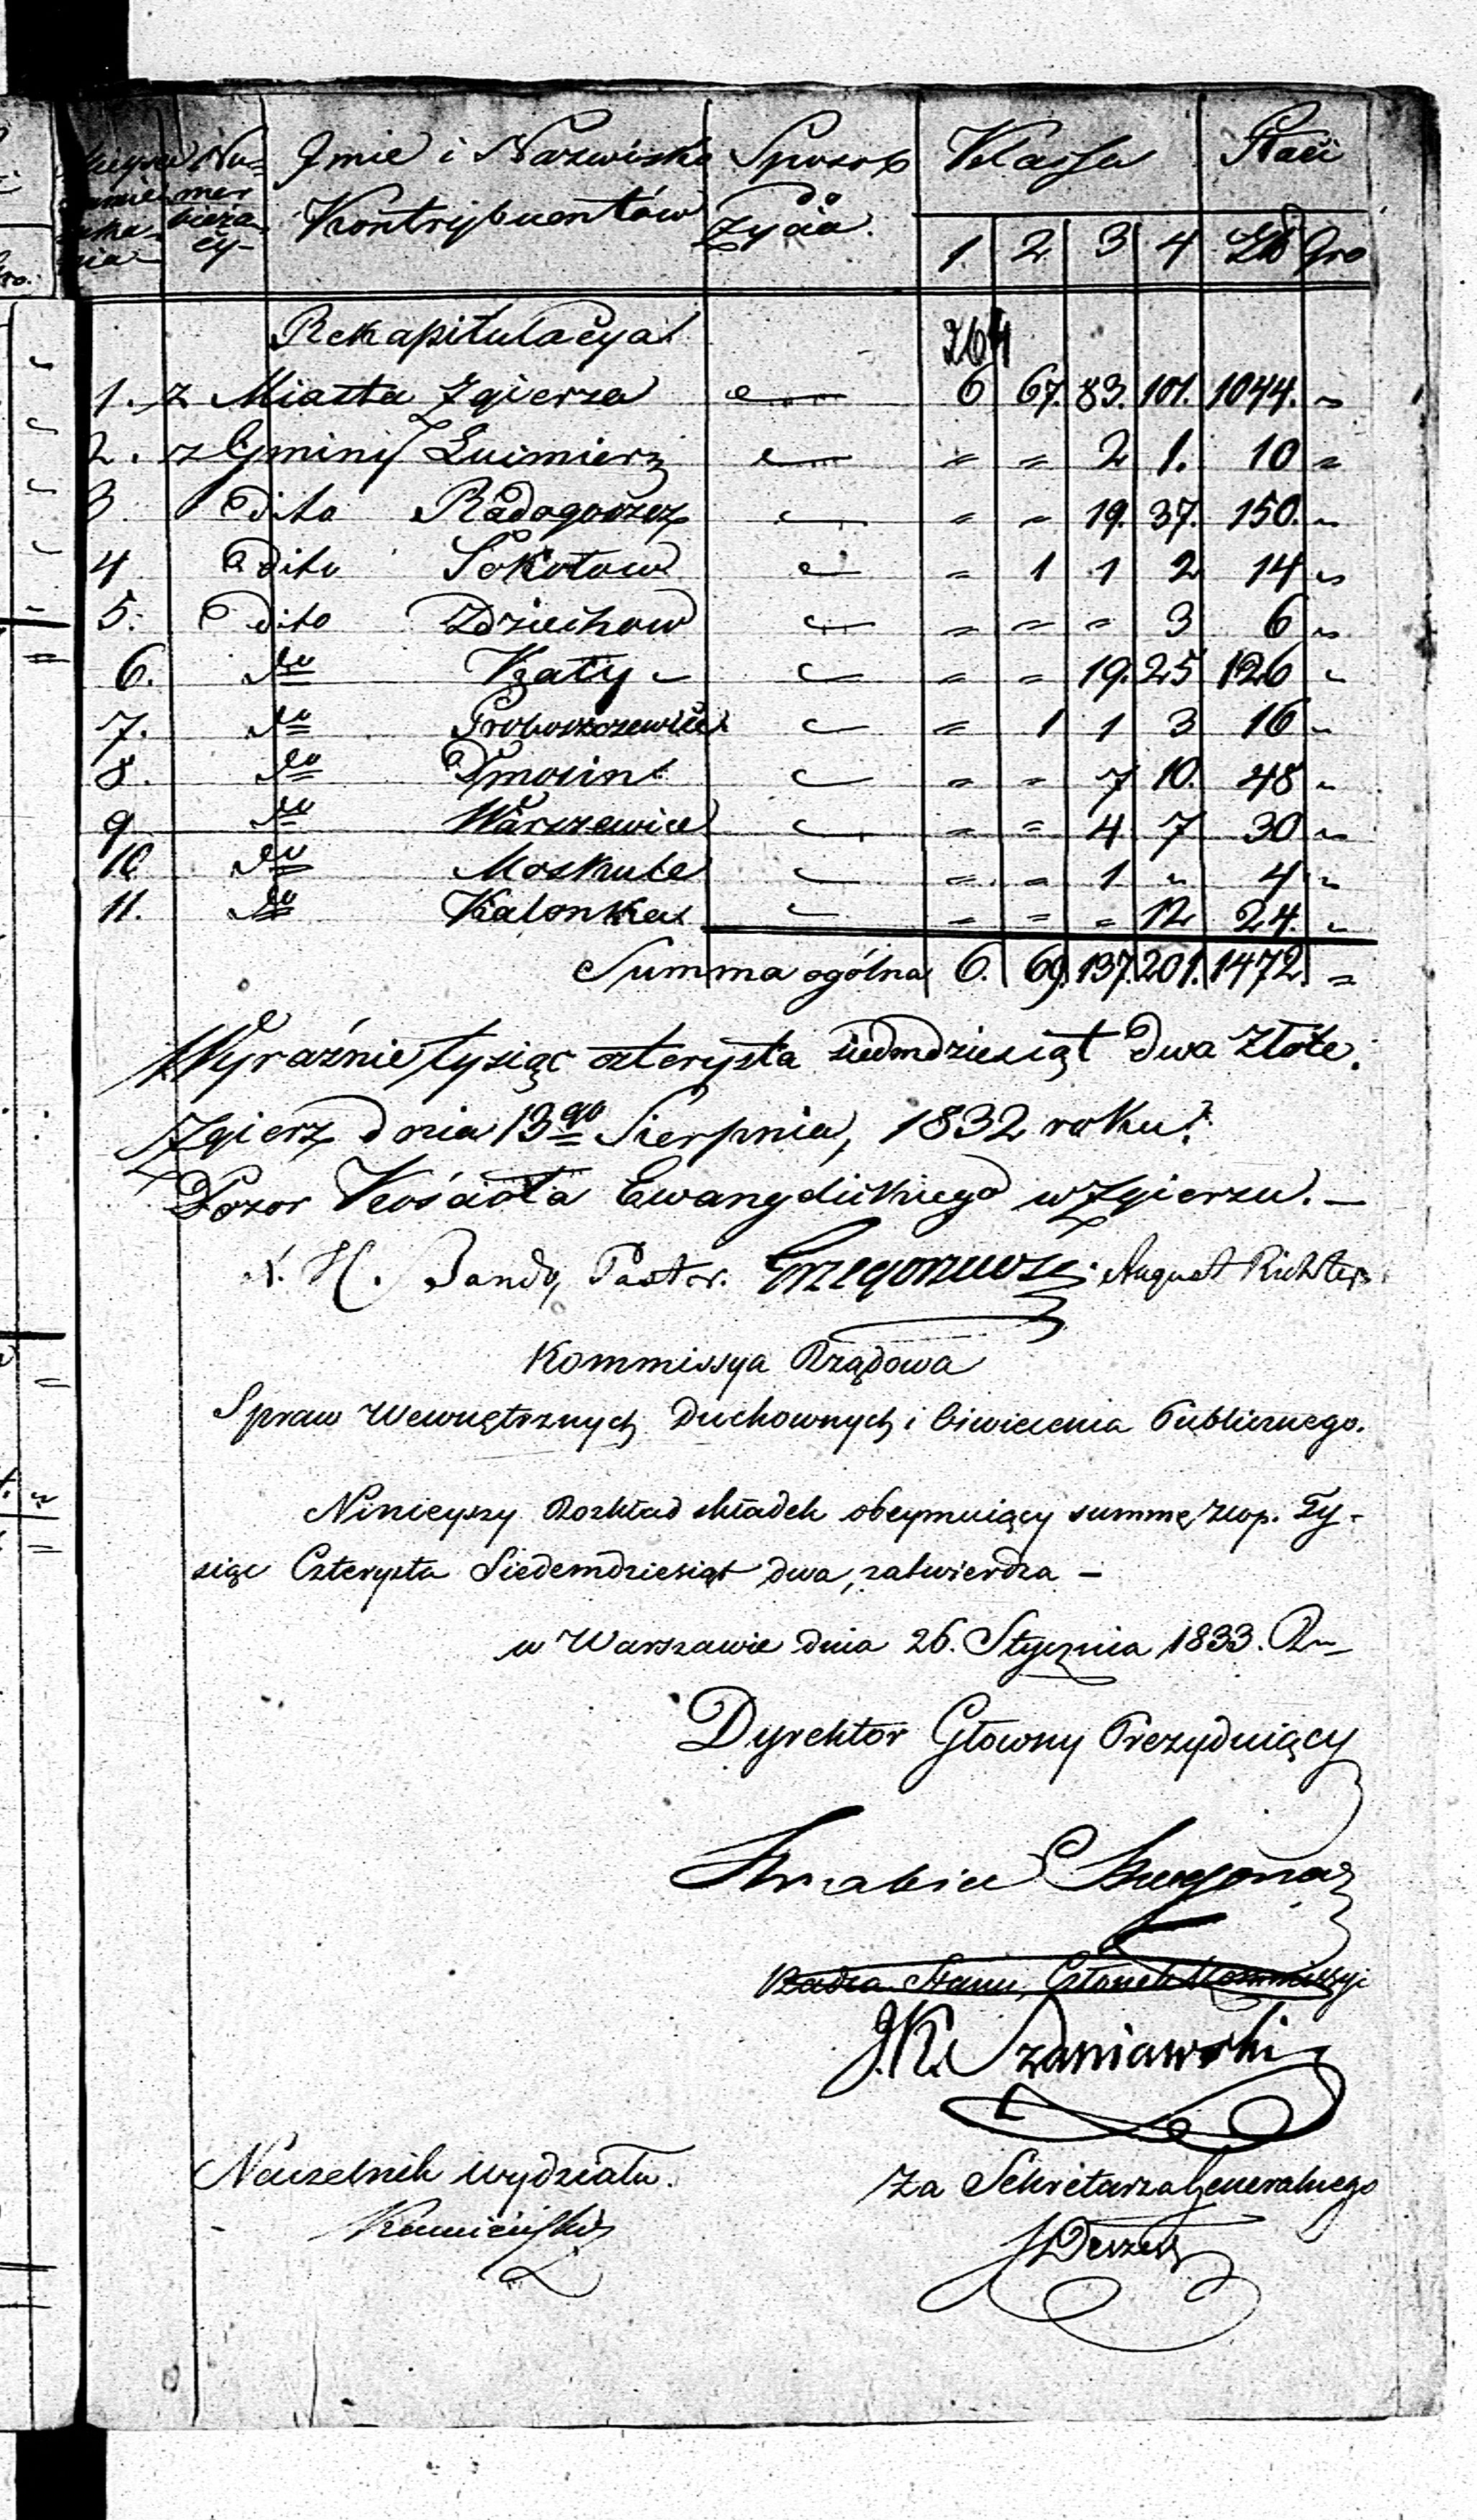 Nu- Imie i Nazwisko Sposob Klassa Płaci
mer Kontrybuentów życia.
bieżą-
cy- 1. 2 3 4 Zł Gro
Rekapitulacya 264
1. z Miasta Zgierza 6 67. 83. 101. 1044. "
2. z Gminy Lucmierz " " 2 1. 10 "
3. dito Radogoszcz " " 19. 37. 150. "
4 dito Sokołow " 1 1 2 14 "
5. dito Dziechow " " " 3 6 "
6. do Kąty " " 19. 25 126 "
7. do Proboszczewice " 1 1 3 16 "
8. do Dmosin " " 7 10. 48 "
9 do Warszewice " " 4 7 30 "
10 do Moskule " " 1 " 4 "
11. do Kalonka " " " 12 24. "
Summa ogólna 6. 69. 137. 201. 1472. "
Wyraźnie tysiąc czterysta siedmdziesiąt dwa złote.
Zgierz dnia 13go Sierpnia, 1832 roku.
Dozor Kościoła Ewangelickiego w Zgierzu. —
H. Bando, Pastor. Grzegorzewski August Richter
Kommissya Rządowa
Spraw Wewnętrznych Duchownych i Oświecenia Publicznego.
Ninieyszy Rozkład składek obeymuiący summę złop. Ty-
siąc Czterysta Siedemdziesiąt dwa, zatwierdza —
w Warszawie dnia 26. Stycznia 1833. R
Dyrektor Głowny Prezyduiący
Radca Stanu, Członek Kommissyi
J.K. Szaniawski
Naczelnik Wydziału. Za Sekretarza Generalnego
Kamieński